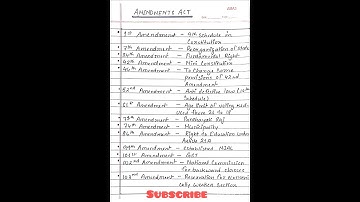 AMENDMENTS ACT
1st Amendment – 9th Schedule in
Constitution
7th Amendment – Reorganization of state
24th Amendment – Fundamental Right
42nd Amendment – Mini Constitution
44th Amendment – To Change some
provisions of 42nd
Amendment
52nd Amendment – Anti defection law (10th
Schedule)
61st Amendment – Age limit of voting
from 21 to 18
73rd Amendment – Panchayati Raj
74th Amendment – Municipality
86th Amendment – Right to Education under
Article 21A
99th Amendment – Established NJAC
101st Amendment – GST
102nd Amendment – National Commission
for backward classes
103rd Amendment – Reservation for
cally weaker section
SUBSCRIBE